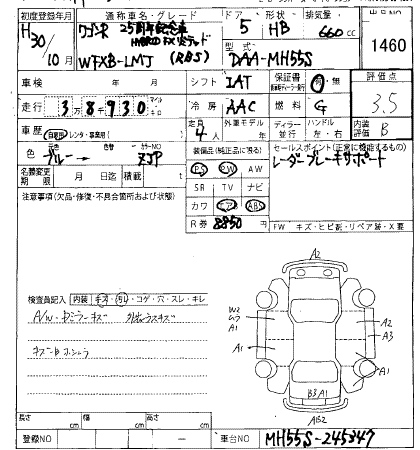 初度登録年月 通称車名・グレード ドア 形状 排気量 出品No
H30/10 ワゴンR 25周年記念車 HYBRID FX リミテッド 5 HB 660cc 1460
WFXB-LMJ (RBS) 型式 DAA-MH55S
車検 年 月 シフト IAT 保証書 有・無 評価点
走行 3万8930 マイル キロ 冷房 AAC 燃料 G 3.5
車歴 自家用 レンタ・事業用( ) 定員 4人 外車モデル 年 ディーラー 並行 ハンドル 左・右 内装評価 B
色 元色 ブルー→ 色替 カラーNO ZJP 装備品(純正品に限る) セールスポイント(正常に機能するもの)
名義変更期限 月 日迄 積載 t PS PW AW レーダーブレーキサポート
注意事項(欠品・修復・不具合箇所および状態) SR TV ナビ
カワ エアB ABS
R券 8850円 FW キズ・ヒビ割・リペア装・X要
検査員記入 内装 キズ・汚レ・コゲ・穴・スレ・キレ
A/W・ドミラーキズ
キズ・B
A2
W2
A1
A1
A2
A3
A1
B3 A1
AB2
長さ cm 幅 cm 高さ cm
登録NO － 車台NO MH55S-245347